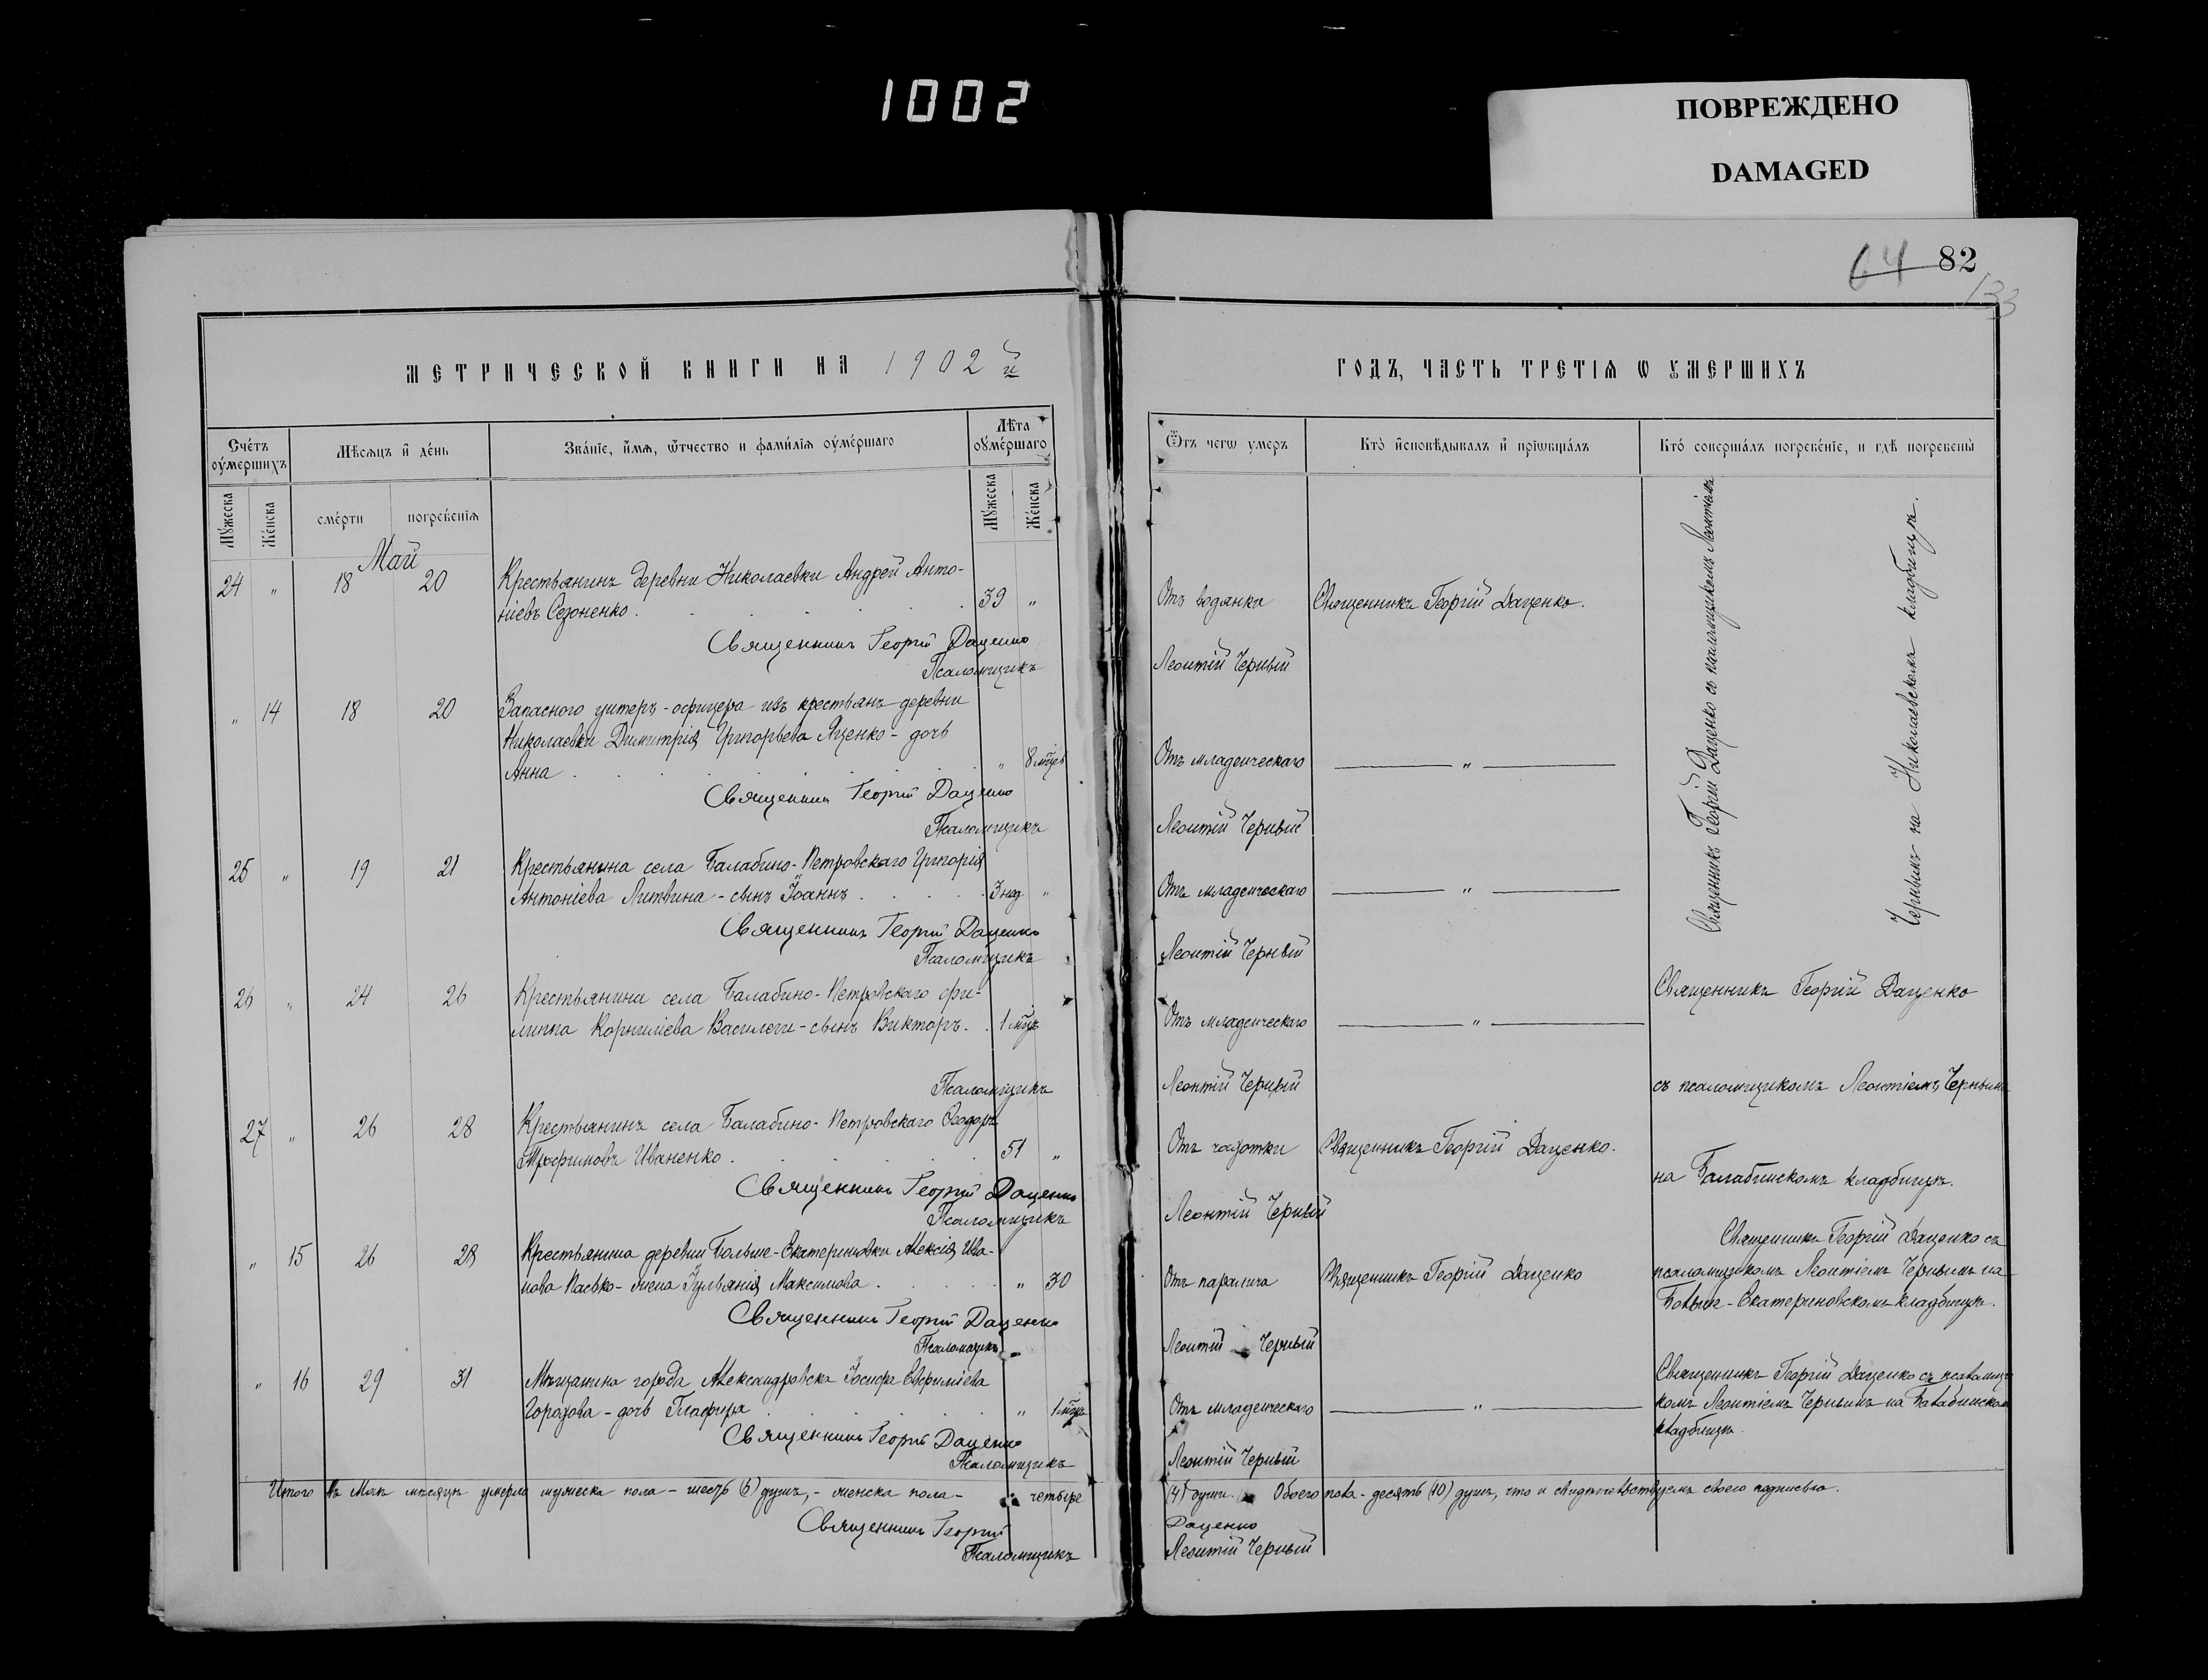 1002
ПОВРЕЖДЕНО
DAMAGED
64 82
133
МЕТРИЧЕСКОЙ КНИГИ НА 1902 й
ГОДЪ, ЧАСТЬ ТРЕТІѦ Ѡ УМЕРШИХЪ
Счетъ оумершихъ
Мѣсяцъ и день
Званіе, имя, ѿчество и фамилія оумершаго
Лѣта оумершаго
Ѿ чегѡ умеръ
Кто исповѣдывалъ и пріѡбщалъ
Кто совершалъ погребеніе, и гдѣ погребены
Мужеска
Женска
смерти
погребенія
Мужеска
Женска
Май
24 " 18 20 Крестьянинъ деревни Николаевки Андрей Анто-
ніевъ Сезоненко . 39 " Отъ водянки Священникъ Георгій Даценко.
Священникъ Георгій Даценко
Псаломщикъ Леонтій Черный
" 14 18 20 Запасного унтеръ-офицера изъ крестьянъ деревни
Николаевки Димитрія Григорьева Яценко - дочь
Анна . " 8 мцев Отъ младенческаго — " —
Священникъ Георгій Даценко
Псаломщикъ Леонтій Черный
25 " 19 21 Крестьянина села Балабино-Петровскаго Григорія
Антоніева Литвина - сынъ Іоаннъ . 3 нед. " Отъ младенческаго — " —
Священникъ Георгій Даценко
Псаломщикъ Леонтій Черный
Священникъ Георгій Даценко съ псаломщикомъ Леонтіемъ
Чернымъ на Николаевскомъ кладбищѣ.
26 " 24 26 Крестьянина села Балабино-Петровскаго Фи-
липпа Корниліева Василеги - сынъ Викторъ . 1 мцъ Отъ младенческаго — " —
Священникъ Георгій Даценко
Псаломщикъ Леонтій Черный
съ псаломщикомъ Леонтіемъ Чернымъ
27 " 26 28 Крестьянинъ села Балабино-Петровскаго Ѳеодоръ
Трофимовъ Иваненко . 51 " Отъ чахотки Священникъ Георгій Даценко.
на Балабинскомъ кладбищѣ.
Священникъ Георгій Даценко
Псаломщикъ Леонтій Черный
" 15 26 28 Крестьянина деревни Больше-Екатериновки Алексія Ива-
нова Пасько - жена Іульянія Максимова . " 30 Отъ паралича Священникъ Георгій Даценко
Священникъ Георгій Даценко съ
псаломщикомъ Леонтіемъ Чернымъ на
Больше-Екатериновскомъ кладбищѣ.
Священникъ Георгій Даценко
Псаломщикъ Леонтій Черный
" 16 29 31 Мѣщанина города Александровска Іосифа Евфиміева
Горохова - дочь Глафира . " 1 мцъ Отъ младенческаго — " —
Священникъ Георгій Даценко съ псаломщи-
комъ Леонтіемъ Чернымъ на Балабинскомъ
кладбищѣ.
Священникъ Георгій Даценко
Псаломщикъ Леонтій Черный
Итого въ Маѣ мѣсяцѣ умерло мужеска пола - шесть (6) душъ, - женска пола - четыре
(4) души. Обоего пола - десять (10) душъ, что и свидѣтельствуемъ своею подписью.
Священникъ Георгій Даценко
Псаломщикъ Леонтій Черный